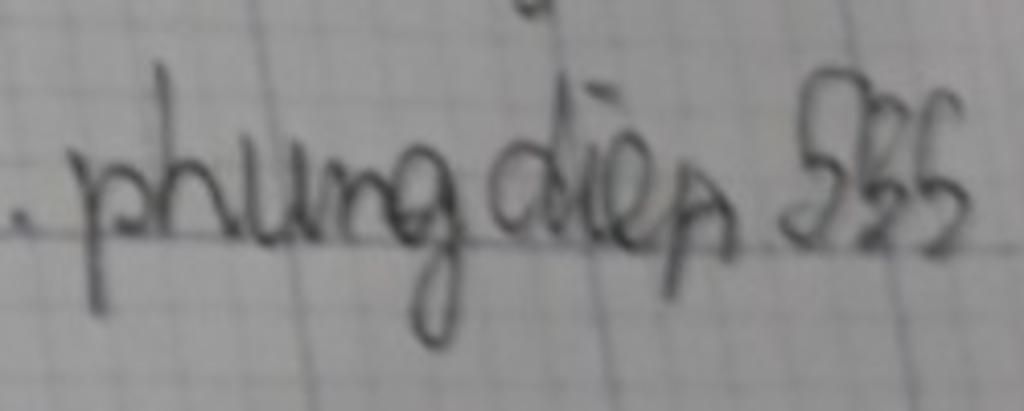 . phungdiện 555